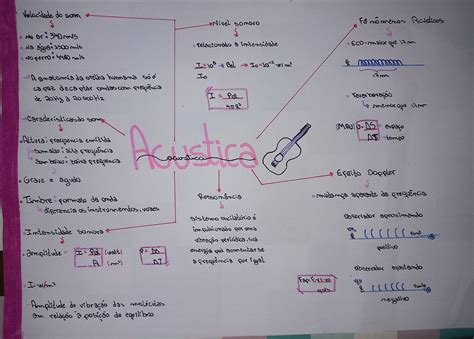 Velocidade do som
• no ar: 340 m/s
• na água: 1500 m/s
• A anatomia da orelha humana só é
capaz de captar ondas com frequência
de 20 Hz a 20 000 Hz
Características do som
• Altura: frequência emitida
som alto: alta frequência
som baixo: baixa frequência
• Grave e agudo
• Timbre: formato da onda
diferencia os instrumentos, vozes
• Intensidade sonora
• amplitude
I = Pot (watt)
A (m²)
P = ΔE
ΔT
• I: w/m²
• Amplitude de vibração das moléculas
em relação à posição de equilíbrio
Nível sonoro
• relacionado à intensidade
I = Pot
4πR²
Acústica
acústica
Ressonância
sistema oscilatório é
impulsionado por uma
vibração periódica
energia por aumentar se
a frequência for igual
Fenômenos Acústicos
• ECO: maior que 17m
17m
• Reverberação
menor que 17m
(MRU) ΔS → espaço
ΔT → tempo
Efeito Doppler
• mudança aparente da frequência
observador aproximando
positivo
observador afastando
negativo